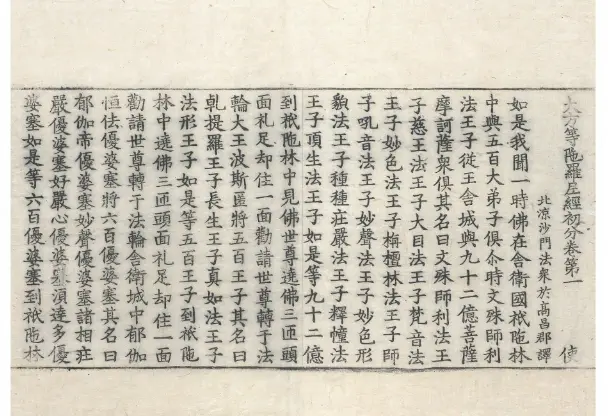 大方等陁羅尼經初分卷第一
使
北涼沙門法衆於高昌郡譯
如是我聞一時佛在舍衛國祇陁林
中與五百大弟子俱尒時文殊師利
法王子從王舍城與九十二億菩薩
摩訶薩衆俱其名曰文殊師利法王
子慈王法王子大目法王子梵音法
王子妙色法王子栴檀林法王子師
子吼音法王子妙聲法王子妙色形
貌法王子種種莊嚴法王子釋幢法
王子頂生法王子如是等九十二億
到祇陁林中見佛世尊遶佛三匝頭
面礼足却住一面勸請世尊轉于法
輪大王波斯匿將五百王子其名曰
乹提羅王子長生王子真如法王子
法形王子如是等五百王子到祇陁
林中遶佛三匝頭面礼足却住一面
勸請世尊轉于法輪舍衛城中郁伽
恒佉優婆塞將六百優婆塞其名曰
郁伽帝優婆塞妙聲優婆塞諸相莊
嚴優婆塞好嚴心優婆塞須達多優
婆塞如是等六百優婆塞到祇陁林